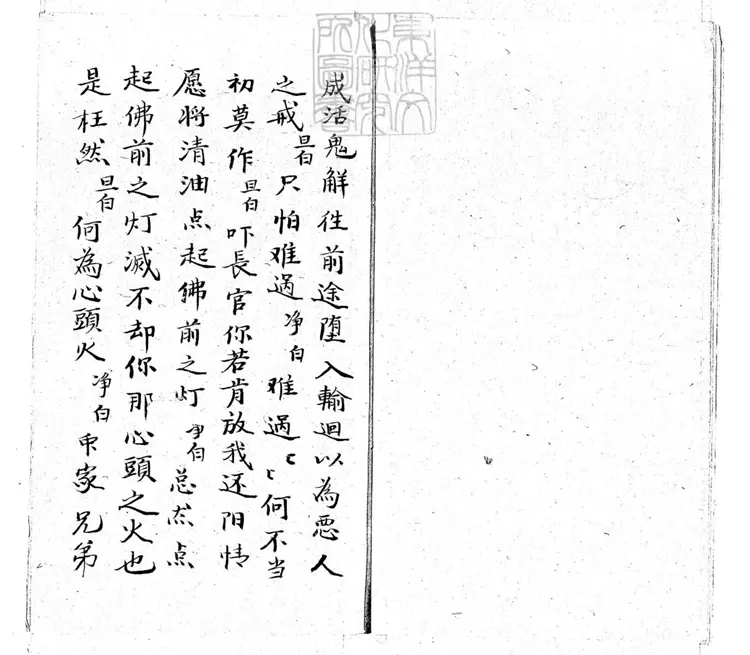 成活鬼解往前途墮入輪迴以為惡人
之戒旦白只怕难過净白难過〻〻何不当
初莫作旦白吓長官你若肯放我还阳情
愿将清油点起佛前之灯净白总然点
起佛前之灯滅不却你那心頭之火也
是枉然旦白何為心頭火净白家兄弟
東洋文化研究所圖書